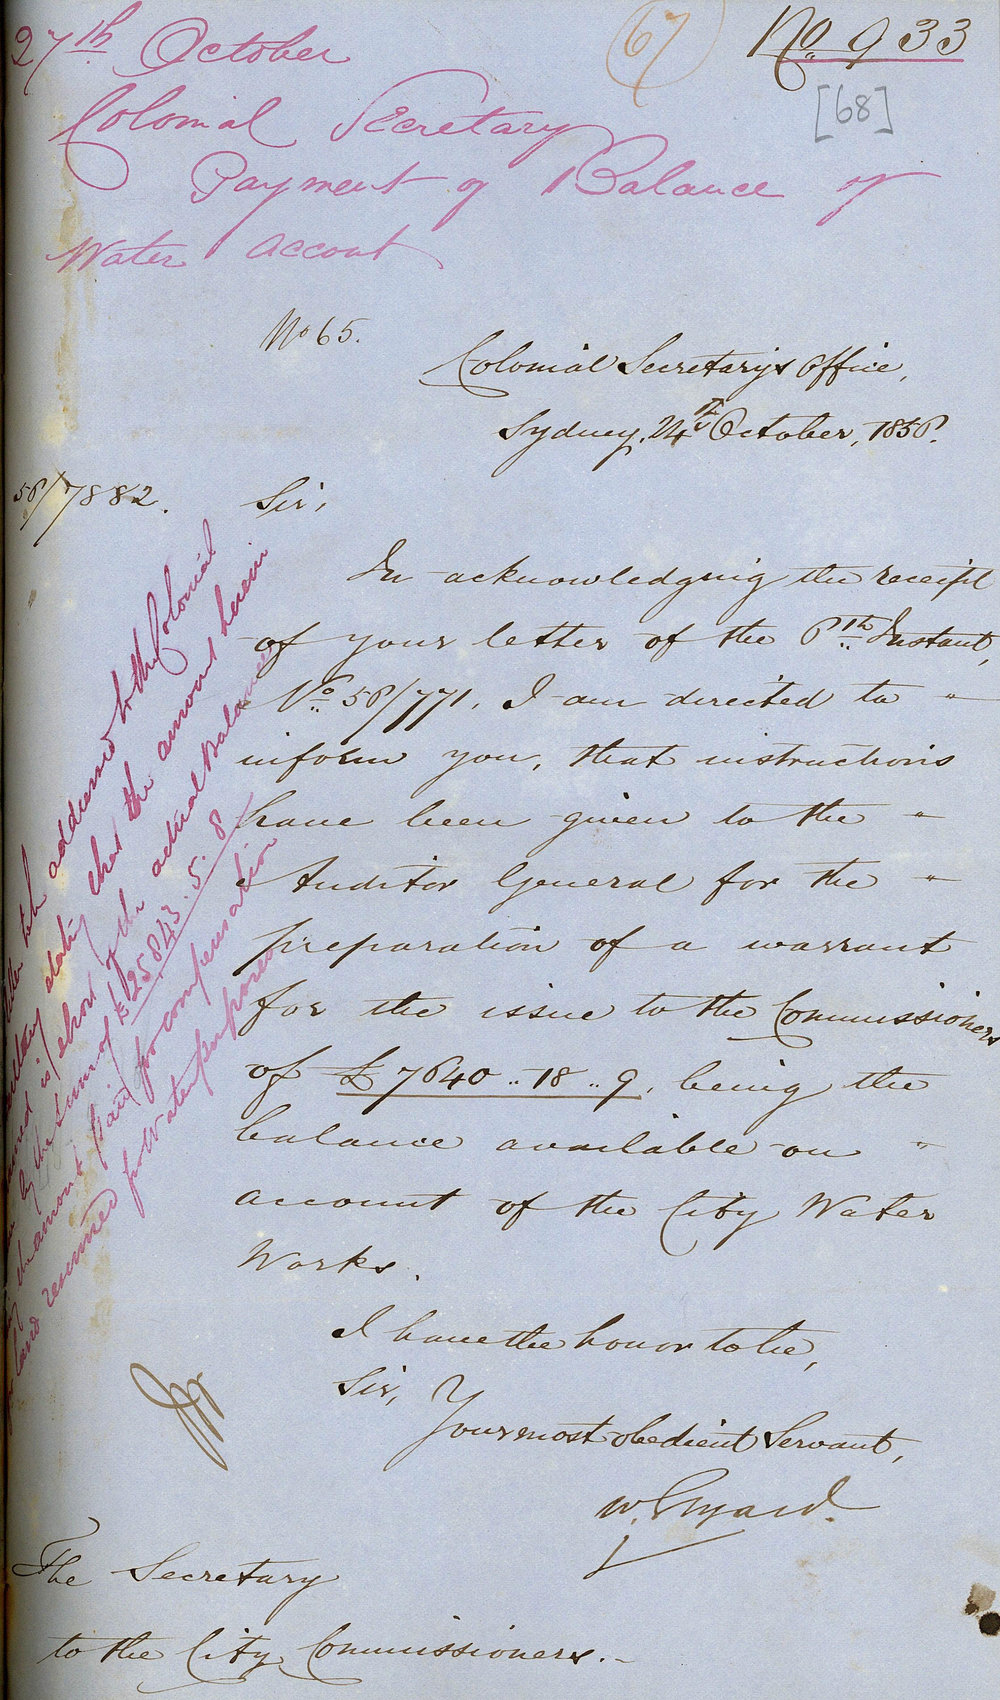 27th October
(67)
No. 933
[68]
Colonial Secretary
Payment of Balance of
Water Accout
No 65.
Colonial Secretary's Office,
Sydney, 24th October, 1856.
56/7882.
Sir,
In acknowledging the receipt
of your letter of the 6th Instant,
No. 56/771, I am directed to "
inform you, that instructions
have been given to the "
Auditor General for the "
preparation of a warrant
for the issue to the Commissioners
of £7640..18..9, being the
balance available on "
account of the City Water
Works.
I have the honor to be,
Sir,
Your most obedient Servant,
W. Elyard.
The Secretary
to the City Commissioners.
addressed to the Colonial
stating that the amount herein
is short of the actual Balance
by the sum of £25843.5.8
the amount paid for compensation
land resumed for Water purposes